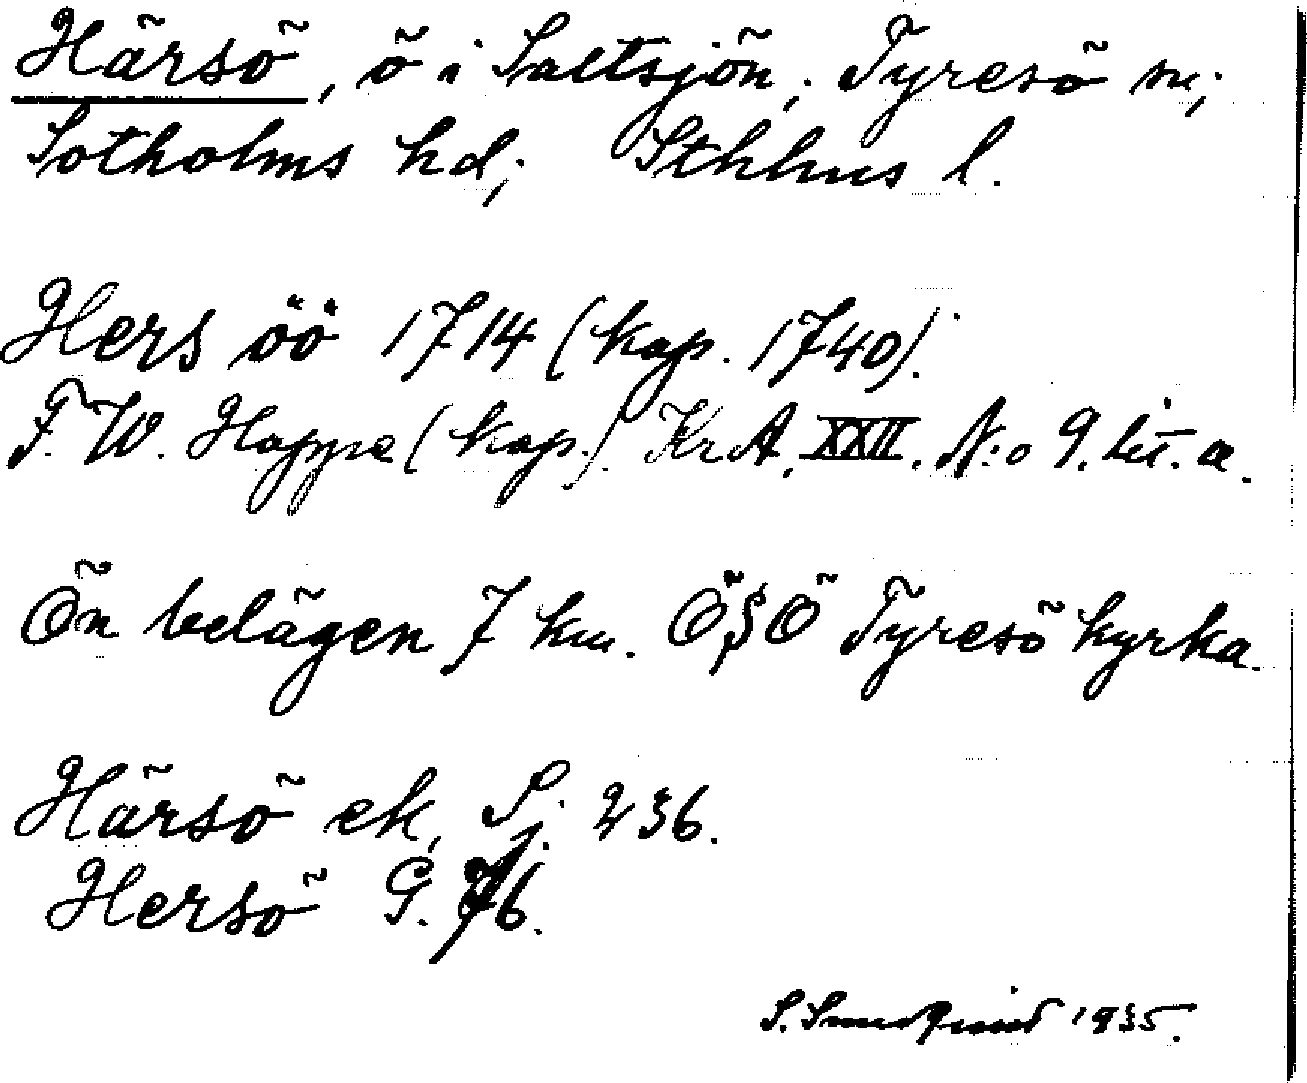 Härsö, ö i Saltsjön; Tyresö sn;
Sotholms hd; Sthlms l.
Hers öö 1714 (kop. 1740).
F. W. Hoppe (kop.) KrA. XXII. N:o 9. lit. a.
Ön belägen 7 km. ÖSÖ Tyresö kyrka.
Härsö ek, Sj. 236.
Hersö G. 76.
S. 1935.